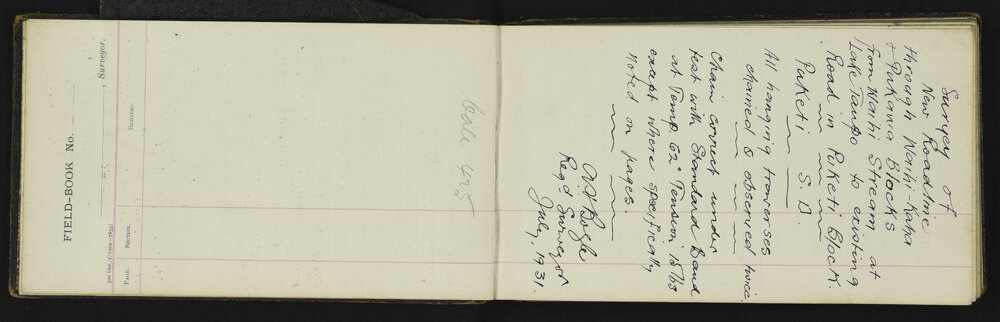 FIELD-BOOK No.
Surveyor.
300 bks./7/1929-7653]
PAGE. SECTION. REMARKS.
Survey of
New Roadline
through Waihi-Kahakaharoa
+ Pukawa Blocks
from Waihi Stream at
Lake Taupo to existing
Road in Puketi Block.
Puketi S D
All hanging traverses
chained & observed twice.
Chain correct under
test with Standard Band
at Temp. 62° Tension, 15 lbs
except where specifically
noted on pages.
Regd. Surveyor
July, 1931.